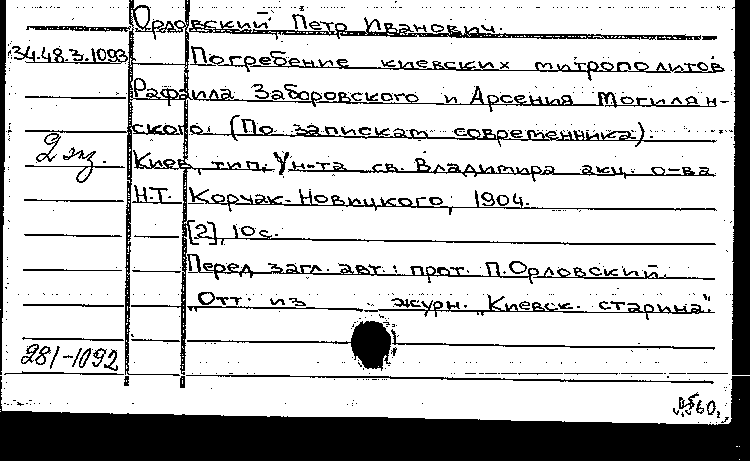 Орловский, Петр Иванович.
34.48.3.1093 Погребение киевских митрополитов
Рафаила Заборовского и Арсения Могилян-
ского. (По запискам современника).
2 экз.
Киев, тип. Ун-та св. Владимира акц. о-ва
Н.Т. Корчак-Новицкого, 1904.
[2], 10 с.
Перед загл. авт.: прот. П.Орловский.
"Отт. из журн. "Киевск. старина".
281-1092